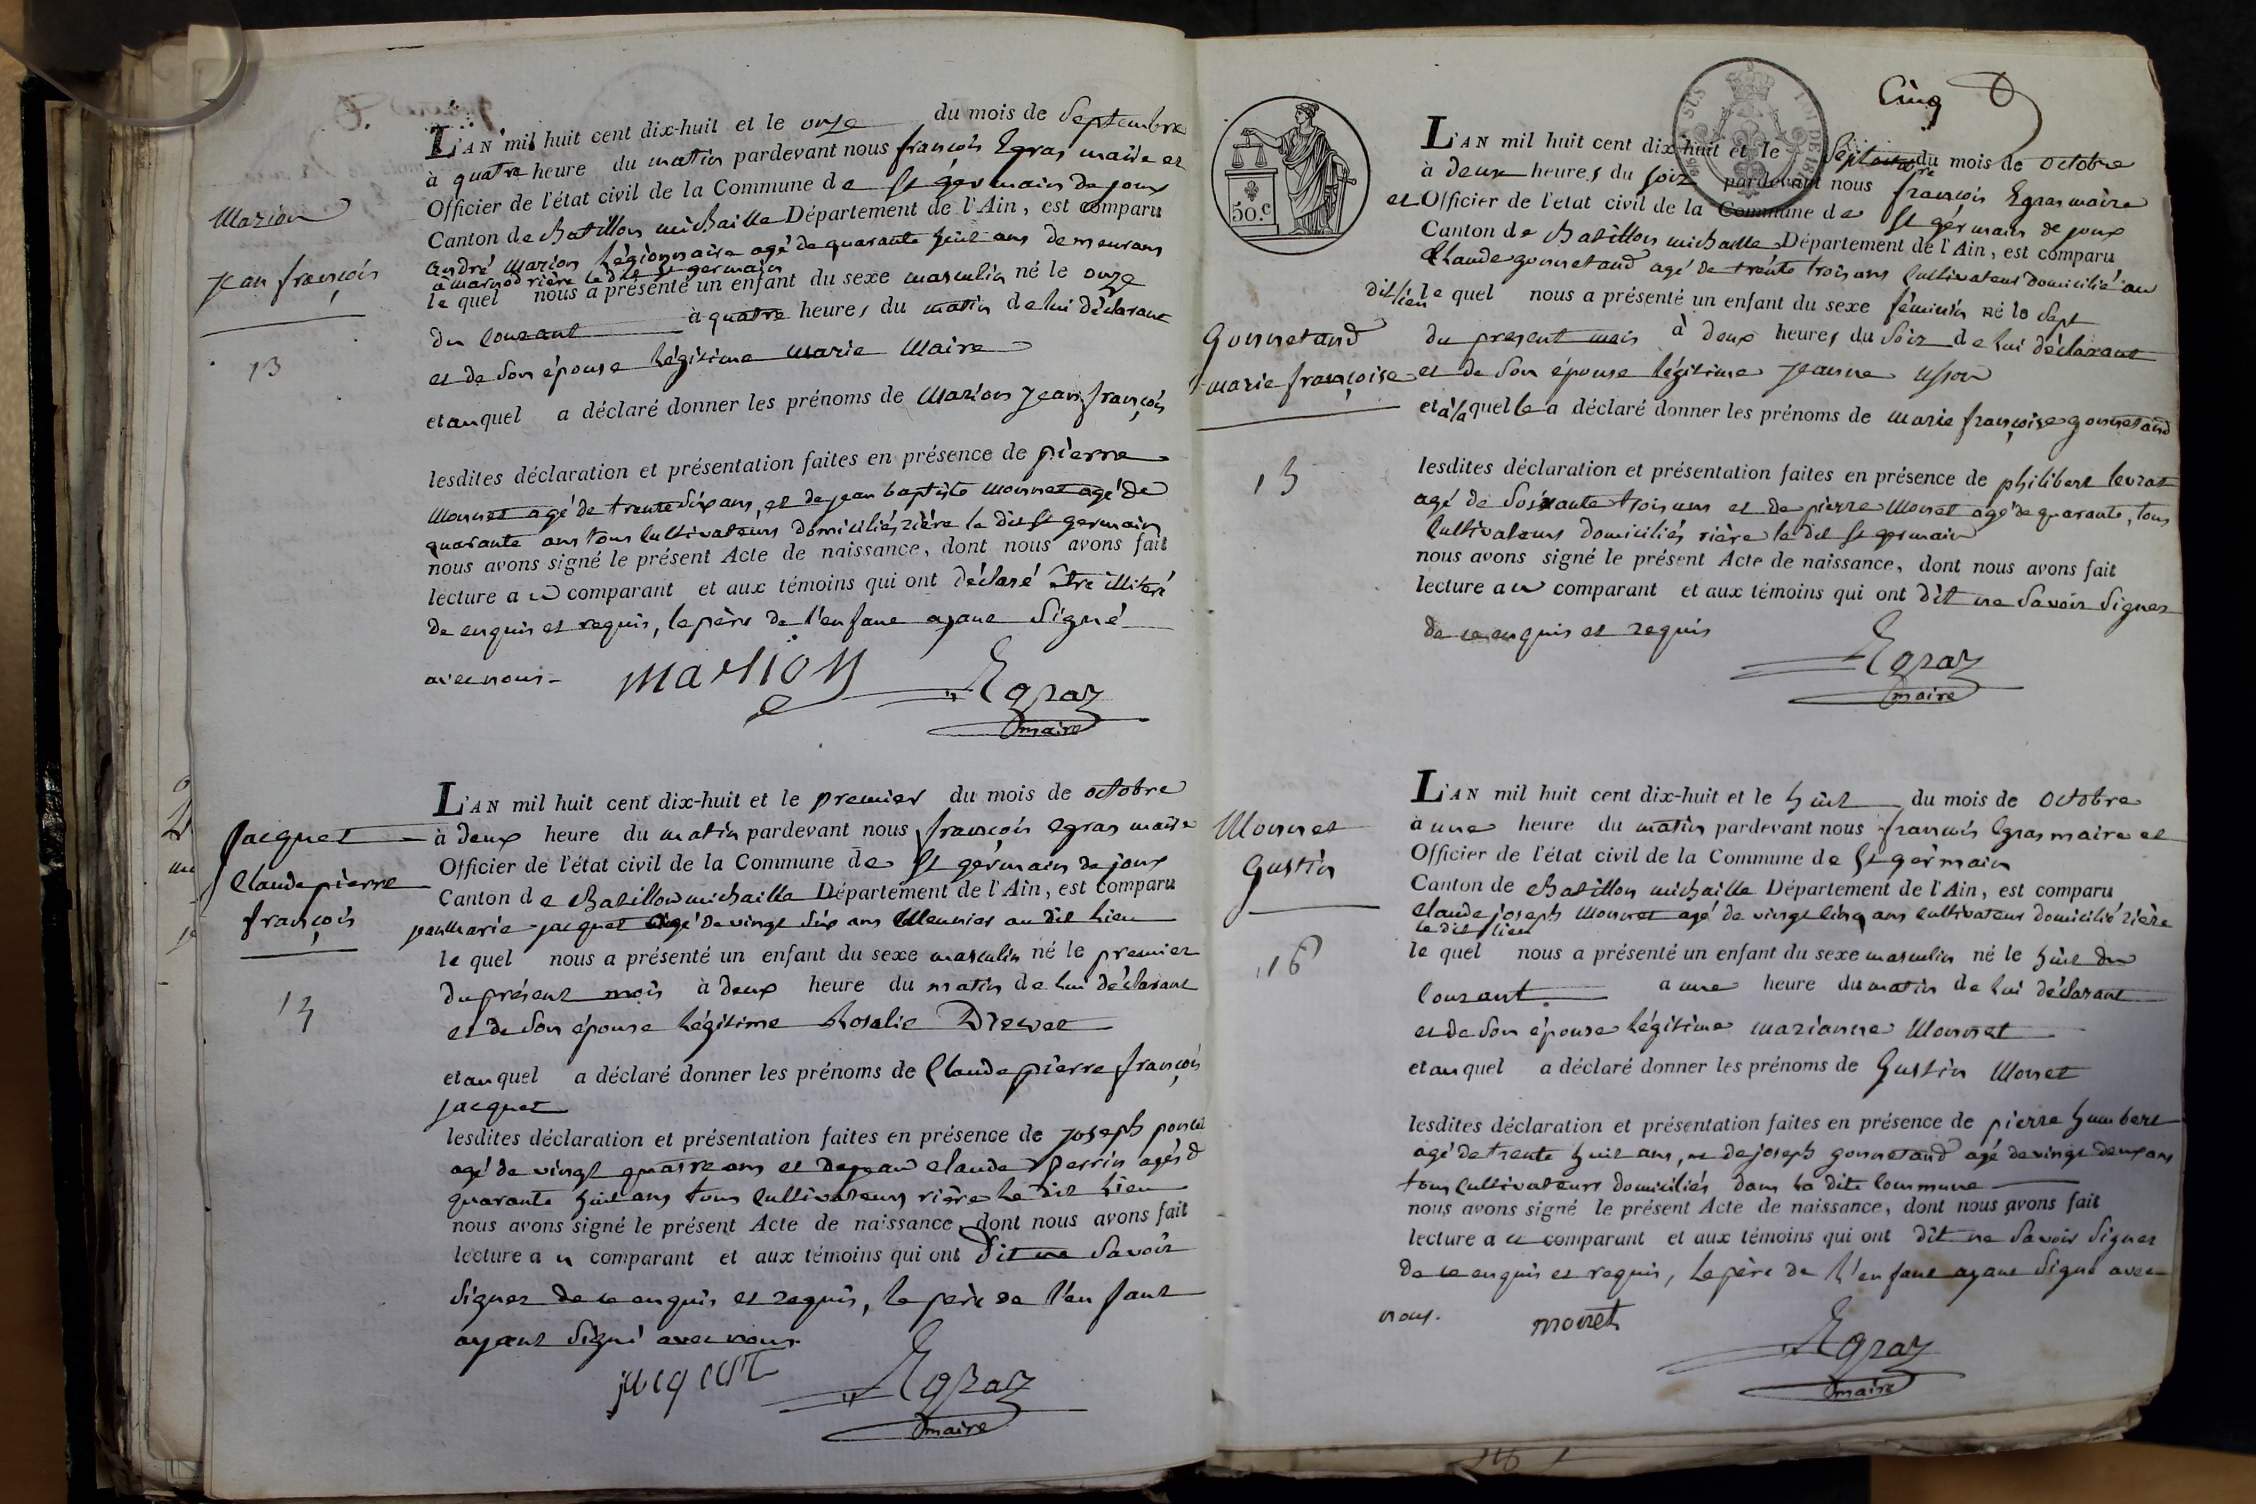 Marion
Jean françois
13
L'AN mil huit cent dix-huit et le onze du mois de Septembre
à quatre heure du matin pardevant nous françois Egraz maire et
Officier de l'état civil de la Commune de St germain de joux
Canton de Chatillon michaille Département de l'Ain, est comparu
andré Marion Légionnaire agé de quarante huit ans demeurant
a marnod rière le dit St germain
le quel nous a présenté un enfant du sexe masculin né le onze
du courant à quatre heures du matin de lui déclarant
et de Son épouse légitime Marie Maire
et au quel a déclaré donner les prénoms de Marion Jean françois
lesdites déclaration et présentation faites en présence de pierre
Monnet agé de trente Six ans, et de jean baptiste Monnet agé de
quarante ans tous Cultivateurs domiciliés rière le dit St germain
nous avons signé le présent Acte de naissance, dont nous avons fait
lecture au comparant et aux témoins qui ont déclaré être illitéré
de enquis et requis, le père de l'enfant ayant Signé
avec nous
Marion Egraz
maire
Jacquet
Claude pierre
françois
L'AN mil huit cent dix-huit et le premier du mois de octobre
à deux heure du matin pardevant nous françois Egraz maire
Officier de l'état civil de la Commune de St germain de joux
Canton de Chatillon michaille Département de l'Ain, est comparu
jean Marie jacquet agé de vingt Six ans Meunier au dit Lieu
le quel nous a présenté un enfant du sexe masculin né le premier
du présent mois à deux heure du matin de lui déclarant
et de Son épouse légitime Rosalie
et au quel a déclaré donner les prénoms de Claude pierre françois
Jacquet
lesdites déclaration et présentation faites en présence de joseph poncet
agé de vingt quatre ans et de jean claude perrin agés d
quarante huit ans tous Cultivateurs rière le dit Lieu
nous avons signé le présent Acte de naissance, dont nous avons fait
lecture au comparant et aux témoins qui ont dit ne Savoir
Signer de ce enquis et requis, le père de l'enfant
ayant Signé avec nous
jacquet Egraz
maire
Cinq
50.c
L'AN mil huit cent dix-huit et le Sept du mois de octobre
à deux heures du Soir pardevant nous françois Egraz maire
et Officier de l'etat civil de la Commune de St germain de joux
Canton de Chatillon michaille Département de l'Ain, est comparu
Claude gonnetand agé de trente trois ans Cultivateur domicilié au
dit lieu le quel nous a présenté un enfant du sexe féminin né le Sept
Gonnetand
marie françoise
du present mois à deux heures du Soir de lui déclarant
et de Son épouse légitime Jeanne
et à la quelle a déclaré donner les prénoms de marie françoise gonnetand
15
lesdites déclaration et présentation faites en présence de philibert levrat
agé de Soixante trois ans et de pierre Monet agé de quarante, tous
Cultivateurs domiciliés rière le dit St germain
nous avons signé le présent Acte de naissance, dont nous avons fait
lecture au comparant et aux témoins qui ont dit ne Savoir Signer
de ce enquis et requis
Egraz
maire
Monnet
Gustin
16
L'AN mil huit cent dix-huit et le huit du mois de Octobre
à une heure du matin pardevant nous francois Egraz maire et
Officier de l'état civil de la Commune de St germain
Canton de Chatillon michaille Département de l'Ain, est comparu
Claude joseph Monnet agé de vingt Cinq ans Cultivateur domicilié rière
le dit lieu
le quel nous a présenté un enfant du sexe masculin né le huit du
courant a une heure du matin de lui déclarant
et de Son épouse légitime marianne Monnet
et au quel a déclaré donner les prénoms de Gustin Monet
lesdites déclaration et présentation faites en présence de pierre humbert
agé de trente huit ans, et de joseph gonnetand agé de vingt deux ans
tous Cultivateurs domiciliés dans la dite Commune
nous avons signé le présent Acte de naissance, dont nous avons fait
lecture au comparant et aux témoins qui ont dit ne Savoir Signer
de ce enquis et requis, le père de l'enfant ayant Signé avec
nous.
monet Egraz
maire